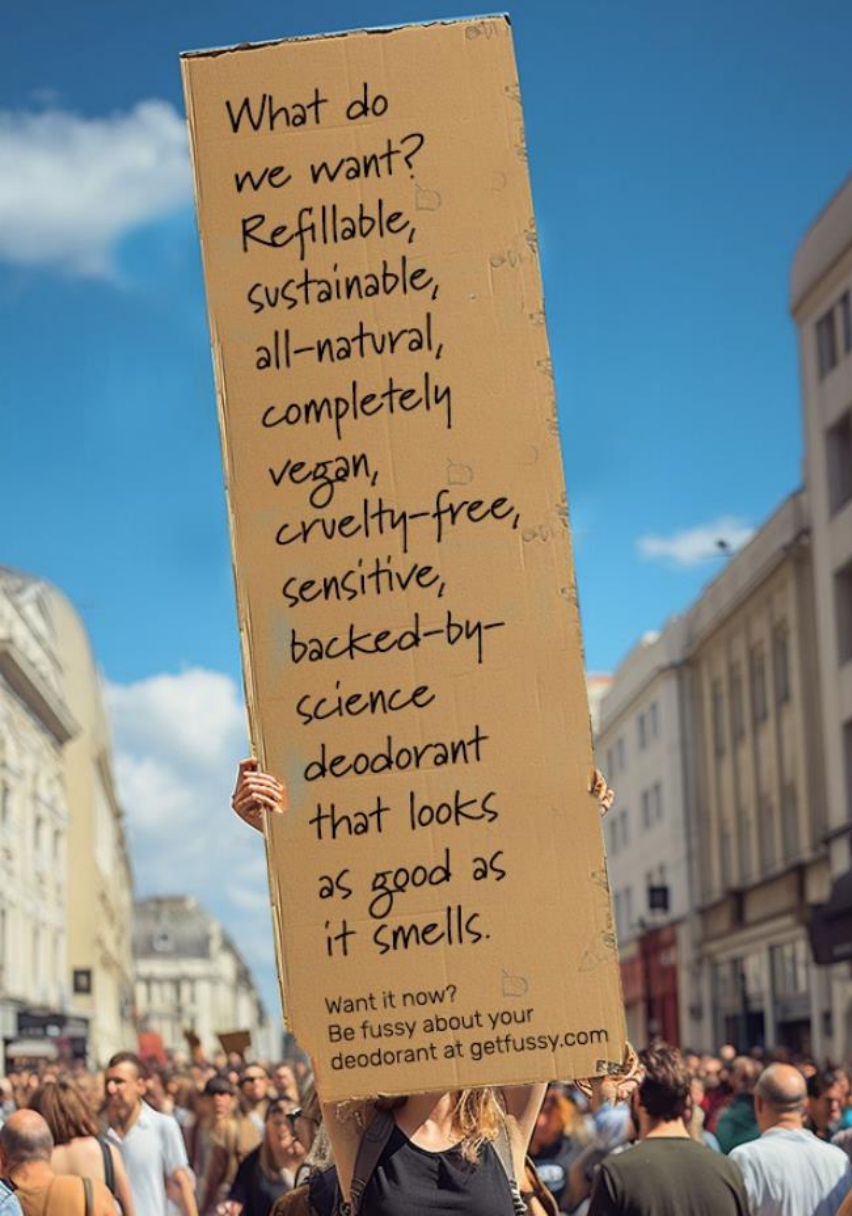 What do
we want?
Refillable,
sustainable,
all-natural,
completely
vegan,
cruelty-free,
sensitive,
backed-by-
science
deodorant
that looks
as good as
it smells.
Want it now?
Be fussy about your
deodorant at getfussy.com